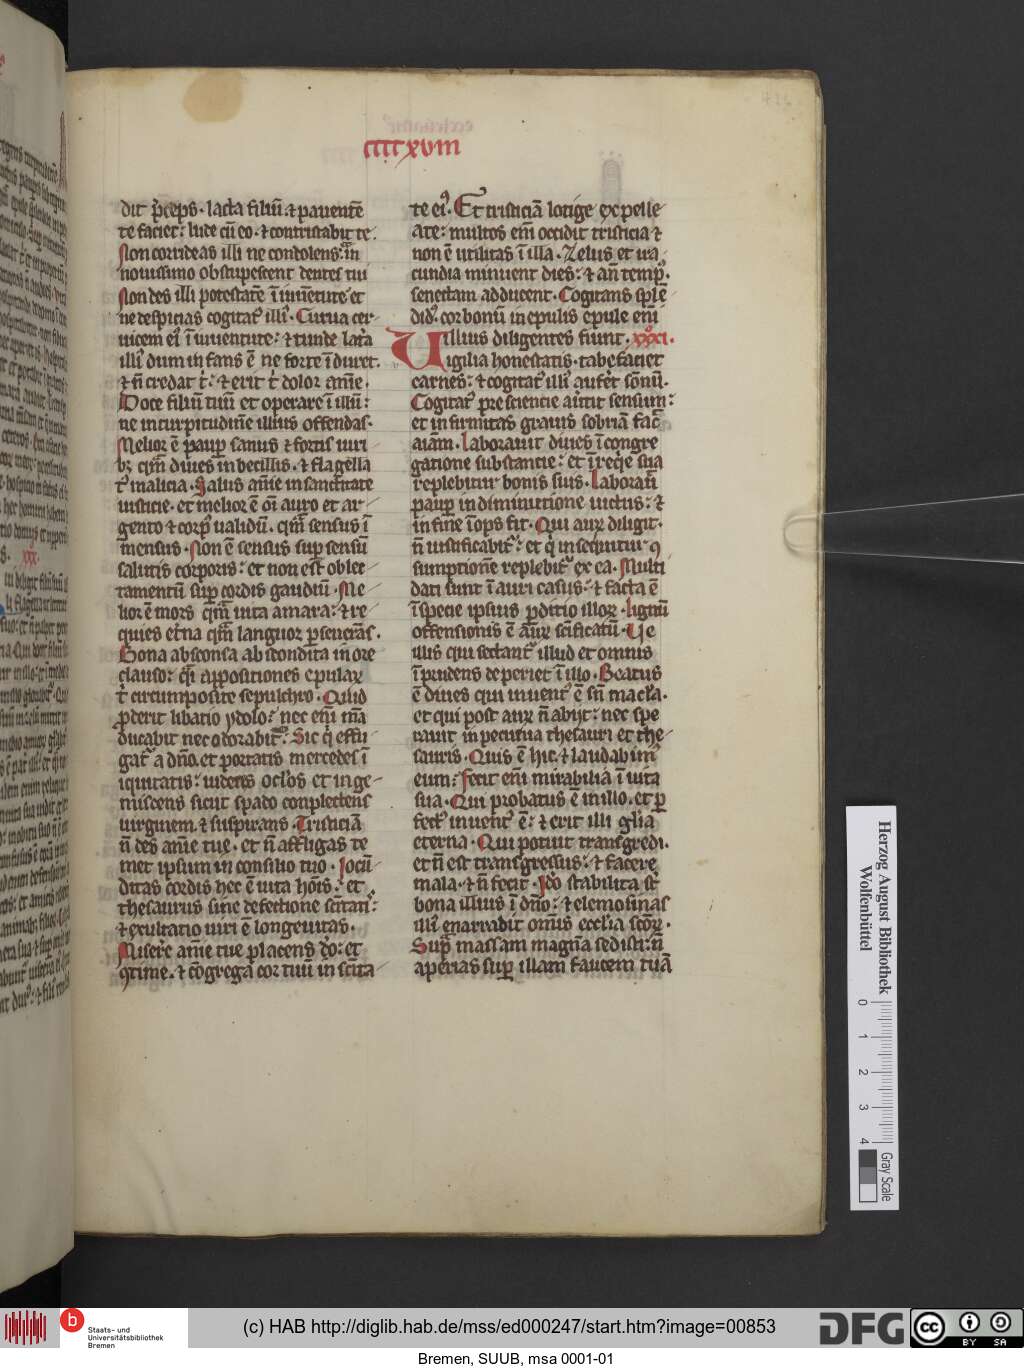 ccccxvııı
dit p̄ceps · lacta filiū ⁊ pauentē
te faciet: lude cū eo · ⁊ contristabit te ·
Non corrideas illi ne condolens: ⁊ in
nouissimo obstupescent dentes tui
Non des illi potestatē ī iuuētute et
ne despicias cogitatꝰ illiꝰ · Curua cer
uicem eiꝰ ī iuuentute: ⁊ tunde latꝰa
illiꝰ dum in fans ē ne forte īduret ·
⁊ n̄ credat t̄: ⁊ erit t̄ dolor anīe ·
Doce filiū tuū et operare ī illū:
ne in turpitudinē illius offendas ·
Melior ē paup̄ sanus ⁊ fortis uiri
bꝫ qm̄ diues inbecillis · ⁊ flagella
tꝰ malicia · Salus anīe in sanctitate
iusticie · et melior ē oī auro et ar
gento ⁊ corpꝰ ualidū · qm̄ sensus ī
mensus · Non ē sensus sup̄ sensū
salutis corporis: et non est oblec
tamentū sup̄ cordis gaudiū · Me
lior ē mors qm̄ uita amara: ⁊ re
quies et̄na qm̄ languor p̱seuerās ·
Bona absconsa abscondita in ore
clauso: q̄i appositiones epulaꝝ
t̄ circumposite sepulchro · Quid
ꝓderit libatio ydolo: nec enī mā
ducabit nec odorabit: Sic q̄ effu
gatꝰ a dn̄o · et portans mercedes ī
iquitatis: uidens oclōs et inge
miscens sicut spado conplectens
uirginem · ⁊ suspirans · Tristiciā
n̄ des anīe tue · et n̄ affligas te
met ipsum in consilio tuo · Iocū
ditas cordis hec ē uita hōis: et
thesaurus sine defectione sc̄itati:
⁊ exultatio uiri ē longeuitas ·
Miserēe anīe tue placens do: et
ꝯtine · ⁊ cōgrega cor tuū in sc̄ita
te eiꝰ · Et tristiciā lo̅ge expelle
a te: multos enī occidit tristicia ⁊
non ē utilitas ī illa · Zelus et ira
cundia minuent dies: ⁊ an̄ tempꝰ
senectam adducent · Cogitans splē
didꝰ · cor bonū in epulis epule enī
illius diligentes fiunt · xxxi ·
Uigilia honestatis · tabefaciet
carnes: ⁊ cogitatꝰ illiꝰ auferet sōnū ·
Cogitatꝰ prescientie au̅tit sensum:
et infirmitas grauis sobriā fac̄
aīam · Laborauit diues ī congre
gatione substantie: et ī reqie sua
replebitur bonis suis · Laborau̅
paup̄ in diminutione uictus: ⁊
in fine īops fit · Qui auꝝ diligit ·
n̄ iustificabitꝰ: et q̄ insequitur ꝯ
sumptionē replebitꝰ ex ea · Multi
dati sunt ī auri casus: ⁊ facta ē
ī specie ipsius p̱ditio illoꝝ · Lignū
offensionis ē auꝝ sc̄ificatiū · Ue
illis qui sectantꝰ illud et omnis
īprudens deperiet ī illo · Beatus
ē diues qui inuentꝰ ē sn̄ macl̄a ·
et qui post auꝝ n̄ abijt: nec spe
rauit in pecunia thesauri et the
sauris · Quis ē hic · ⁊ laudabimꝰ
eum: fecit enī mirabilia ī uita
sua · Qui probatus ē in illo · et p̱
fectꝰ inuentꝰ ē: ⁊ erit illi gl̄ia
eterna · Qui potuit transgredi ·
et n̄ est transgressus: ⁊ facere
mala · ⁊ n̄ fecit · Ido stabilita st̄
bona illius ī dn̄o: ⁊ elemosīnas
illiꝰ enarrabit om̄is ecc̄lia sc̄oꝝ ·
Sup̄ massam magnā sedisti: n̄
aperias sup̄ illam faucem tuā
Herzog August Bibliothek
Wolfenbüttel
0 1 2 3 4
Gray Scale
b Staats- und
Universitätsbibliothek
Bremen
(c) HAB http://diglib.hab.de/mss/ed000247/start.htm?image=00853
DFG
cc BY SA
Bremen, SUUB, msa 0001-01